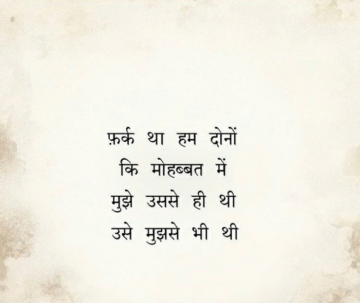 फ़र्क था हम दोनों
कि मोहब्बत में
मुझे उससे ही थी
उसे मुझसे भी थी